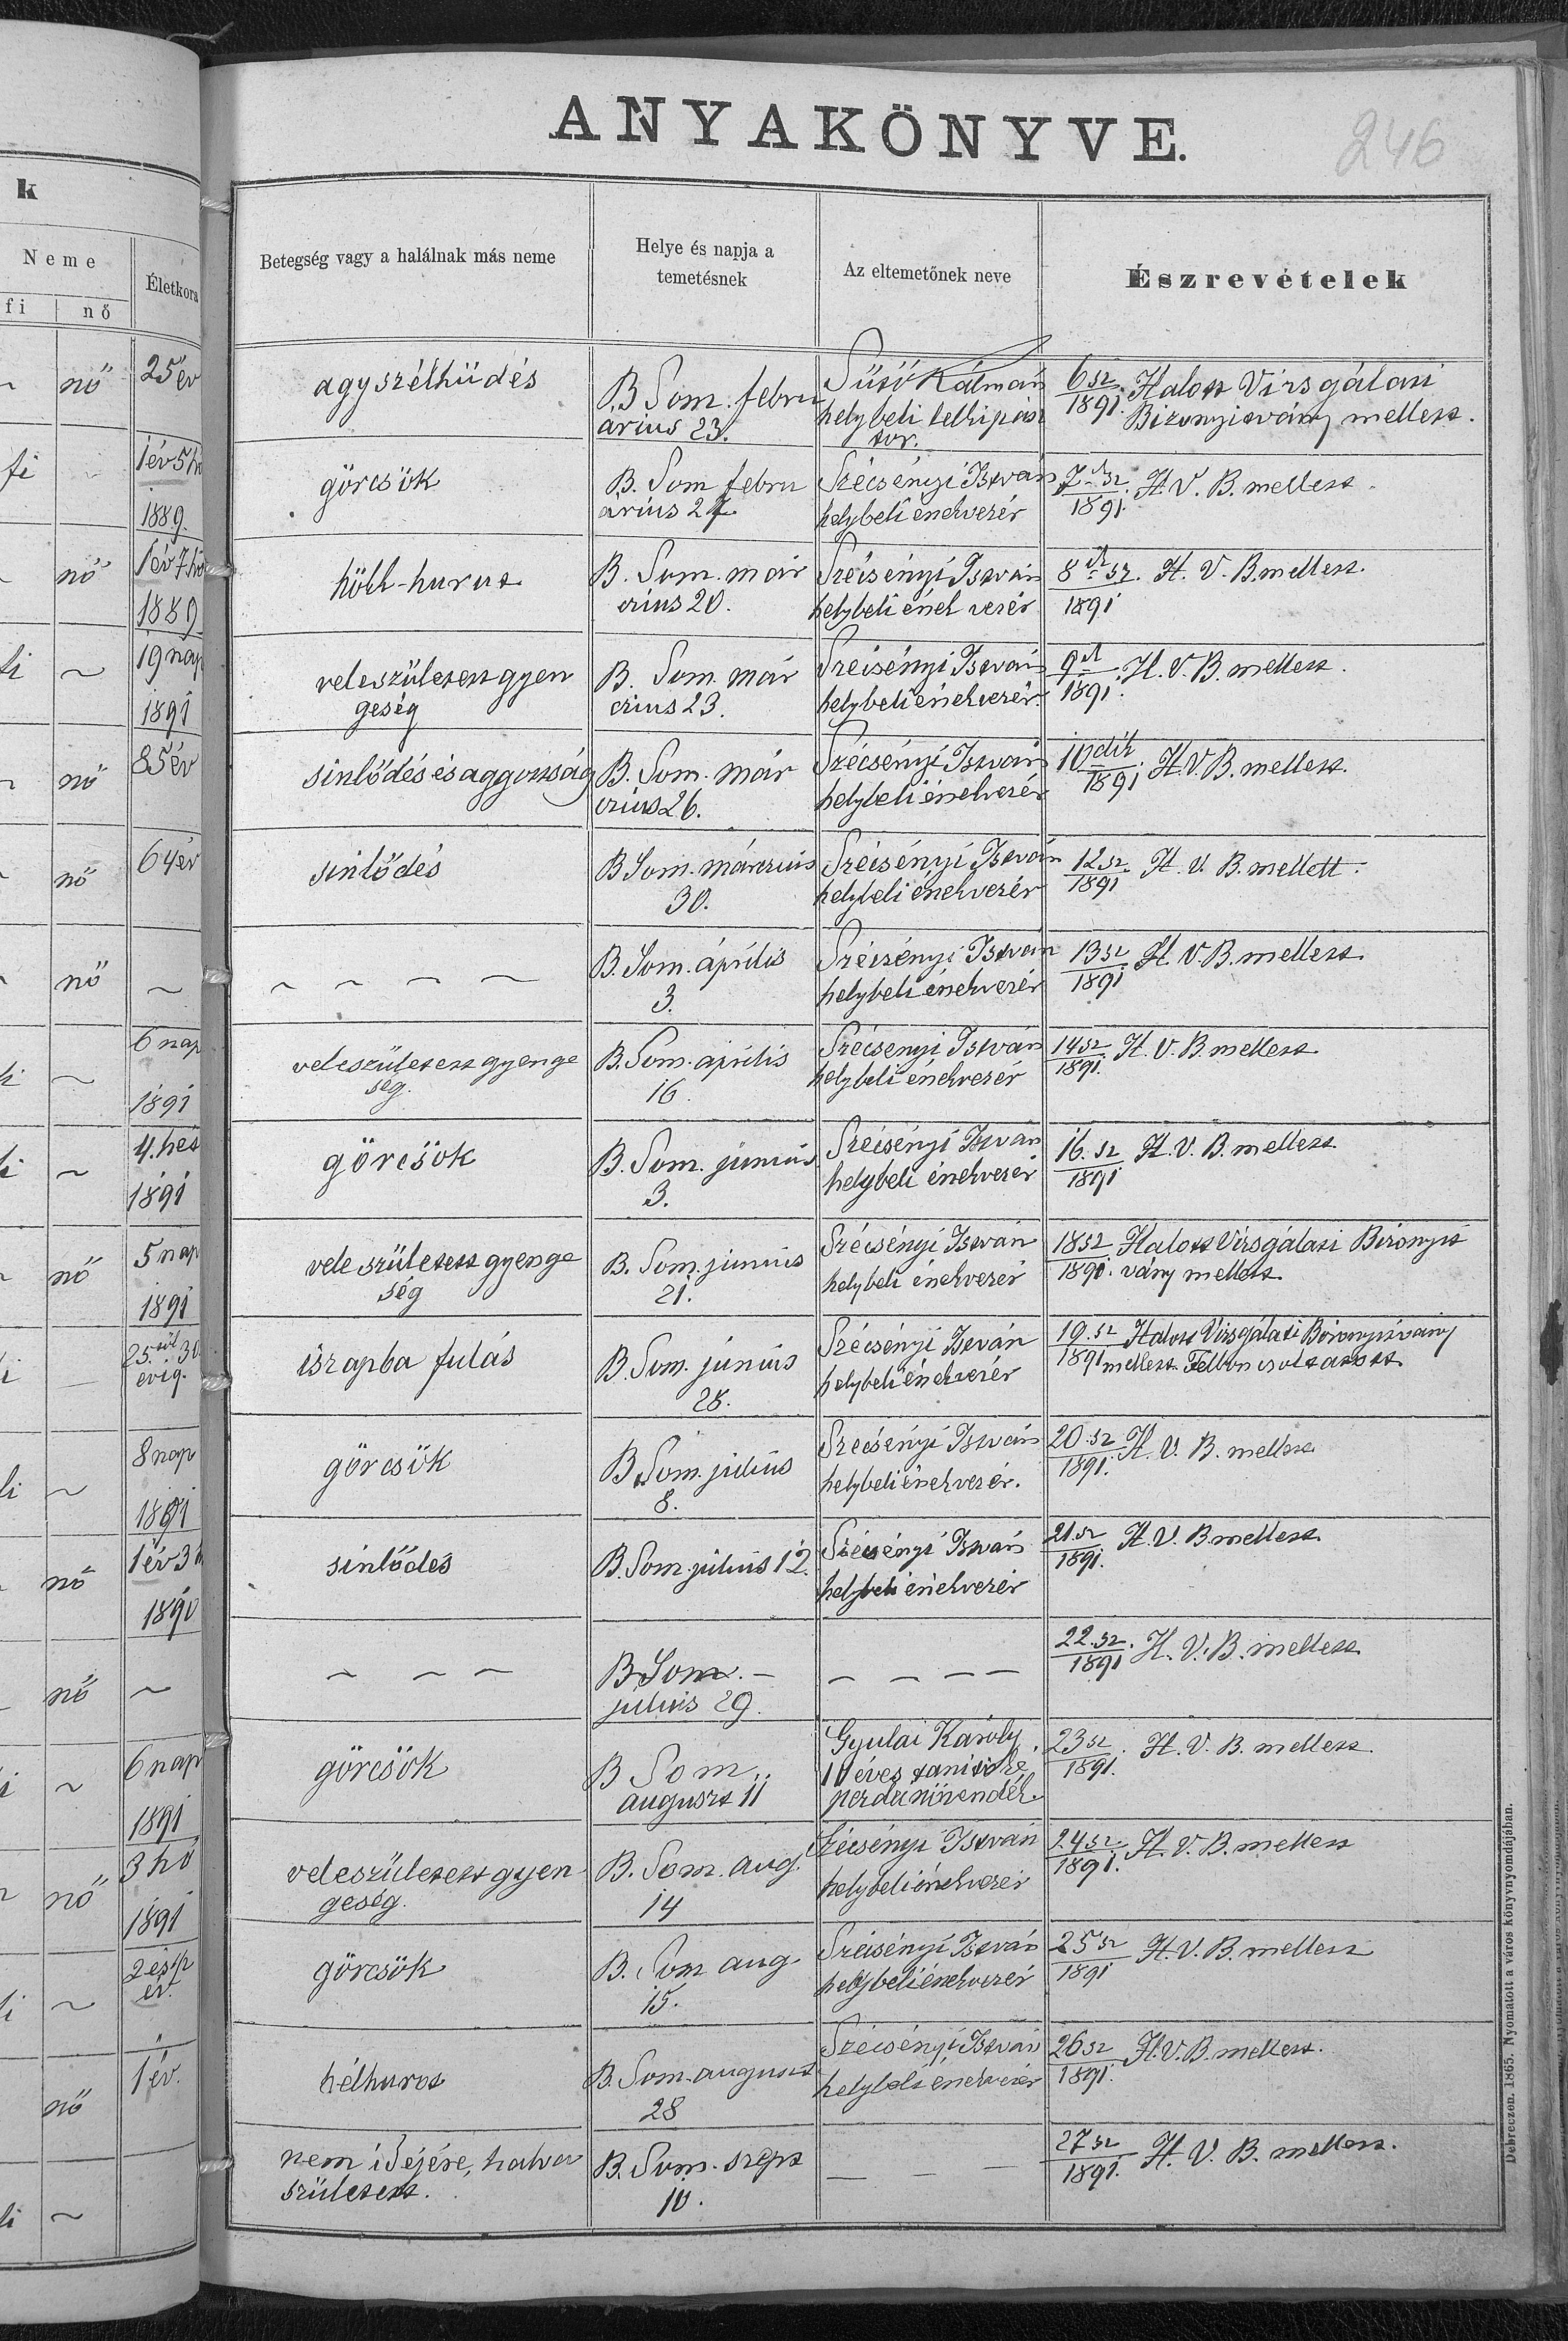 ANYAKÖNYVE.
246
k
Neme
Életkora
fi
nő
Betegség vagy a halálnak más neme
Helye és napja a
temetésnek
Az eltemetőnek neve
Észrevételek
nő
25 év
agyszélhüdés
B. Som. febru
árius 23.
Kálmán
helybeli lelkipász
tor.
6 sz
1891.
Halott Vizsgálati
Bizonyitvány mellett.
fi
1 év 5 h
1889.
görcsök
B. Som febru
árius 27.
Szécsényi István
helybeli énekvezér
7 ik sz
1891.
H. V. B. mellett.
nő
1 év 7 hó
1889
B. Som. már
czius 20.
Szécsényi István
helybeli ének vezér
8 ik sz.
1891
H. V. B. mellett.
~
19 nap
1891
veleszületett gyen
geség
B. Som. már
czius 23.
Szécsényi István
helybeli énekvezér.
9 ik
1891.
H. V. B. mellett.
nő
85 év
sinlődés és aggottság
B. Som. már
czius 26.
Szécsényi István
helybeli énekvezér
10 dik
1891
H. V. B. mellett.
nő
64 év
sinlődés
B Som. márczius
30.
Szécsényi István
helybeli énekvezér
12 sz
1891
H. V. B. mellett.
nő
~
~ ~ ~ ~
B. Som. április
3.
Szécsényi István
helybeli énekvezér
13 sz
1891
H. V. B. mellett.
~
6 nap
1891
veleszületett gyenge
ség.
B. Som. április
16.
Szécsenyi István
helybeli énekvezér
14 sz
1891.
H. V. B. mellett
~
4. hét
1891
görcsök
B. Som. junius
3.
Szécsényi István
helybeli énekvezér
16. sz
1891
H. V. B. mellett
nő
5 nap
1891
vele született gyenge
ség
B. Som. junius
21.
Szécsényi István
helybeli énekvezér
18 sz
1890.
Halott Vizsgálati Bizonyit
vány mellett.
25. től 30
évig.
iszapba fulás
B. Som. június
28.
Szécsényi István
helybeli énekvezér
19. sz
1891
Halott Vizsgálati Bizonyitvány
mellett. Felbonczoltatott
~
8 nap
1891
görcsök
B. Som. július
8.
Szécsényi István
helybeli énekvezér.
20. sz
1891.
H. V. B. mellett
nő
1 év 3 h
1890
sinlődés
B. Som. július 12.
Szécsényi István
helybeli énekvezér
21. sz
1891.
H. V. B. mellett
nő
~
~ ~ ~
B. Som. –
július 29.
– – – –
22. sz.
1891
H. V. B. mellett
~
6 nap
1891
görcsök
B Som.
auguszt 11
Gyulai Károly
10 éves tanitóké
pezdei növendék.
23 sz
1891.
H. V. B. mellett.
nő
3 hó
1891
veleszületett gyen
geség.
B. Som. aug.
14
Szécsényi István
helybeli énekvezér
24 sz.
1891.
H. V. B. mellett
~
2 és ½
év.
görcsök
B. Som aug.
15.
Szécsényi István
helybeli énekvezér
25 sz
1891
H. V. B. mellett
nő
1 év.
hélhurot
B. Som. auguszt
28
Szécsényi István
helybeli énekvezér
26 sz
1891.
H. V. B. mellett.
~
nem idejére, halva
született.
B. Som. szept
10.
– – –
27 sz
1891.
H. V. B. mellett.
Debreczen. 1865. Nyomatott a város könyvnyomdájában.